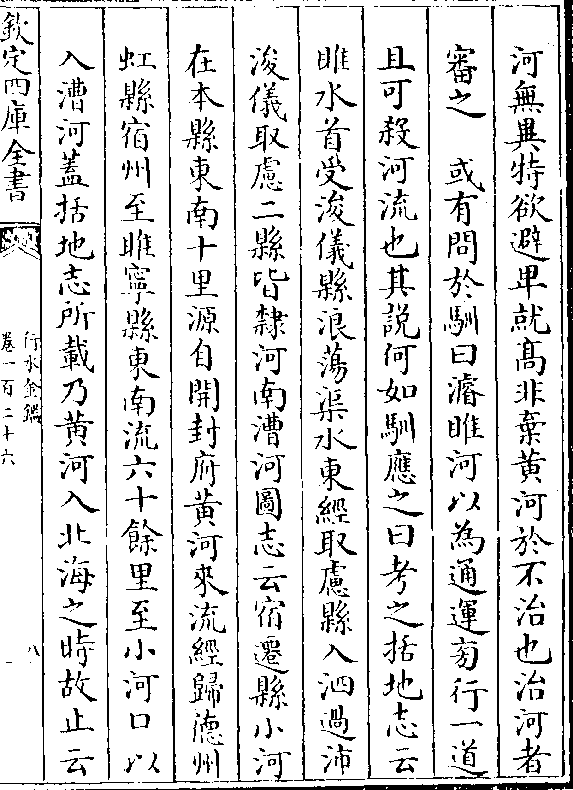 河無異特欲避卑就高非棄黃河於不治也治河者
審之　或有問於馴曰濬睢河以為通運旁行一道
且可殺河流也其說何如馴應之曰考之括地志云
睢水首受浚儀縣浪蕩渠水東經取慮縣入泗過沛
浚儀取慮二縣皆隸河南漕河圖志云宿遷縣小河
在本縣東南十里源自開封府黃河來流經歸德州
虹縣宿州至睢寧縣東南流六十餘里至小河口以
入漕河蓋括地志所載乃黃河入北海之時故止云
欽定四庫全書
行水金鑑
卷一百二十六
八